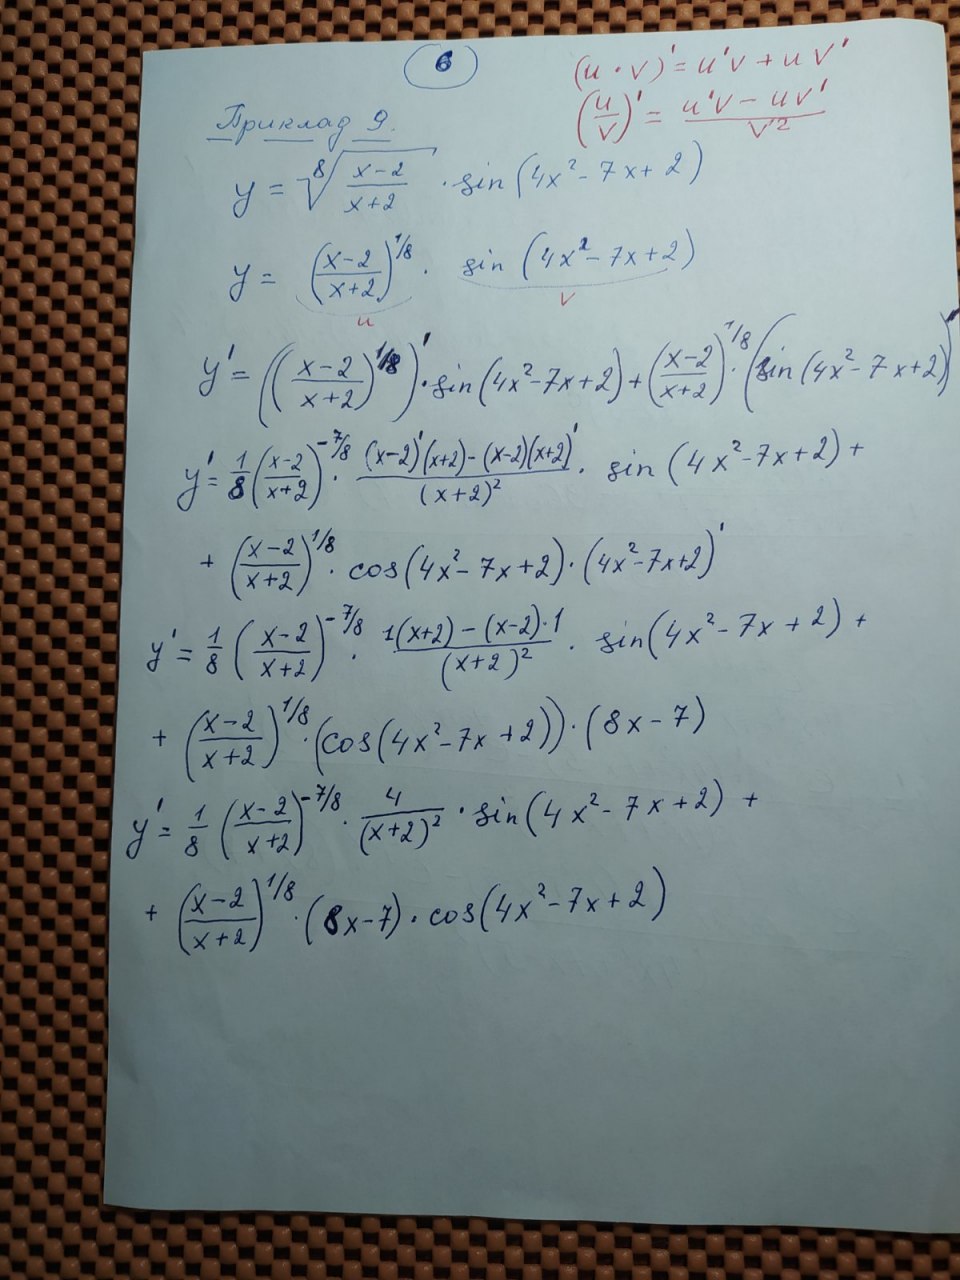 6
(u · v)' = u'v + u v'
(u/v)' = (u'v − uv')/v²
Приклад 9.
y = ⁸√((x−2)/(x+2)) · sin(4x² − 7x + 2)
y = ((x−2)/(x+2))^(1/8) · sin(4x² − 7x + 2)
u v
y' = (((x−2)/(x+2))^(1/8))' · sin(4x² − 7x + 2) + ((x−2)/(x+2))^(1/8) · (sin(4x² − 7x + 2))'
y' = 1/8 ((x−2)/(x+2))^(−7/8) · ((x−2)'(x+2) − (x−2)(x+2)')/(x+2)² · sin(4x² − 7x + 2) +
+ ((x−2)/(x+2))^(1/8) · cos(4x² − 7x + 2) · (4x² − 7x + 2)'
y' = 1/8 ((x−2)/(x+2))^(−7/8) · (1(x+2) − (x−2)·1)/(x+2)² · sin(4x² − 7x + 2) +
+ ((x−2)/(x+2))^(1/8) · (cos(4x² − 7x + 2)) · (8x − 7)
y' = 1/8 ((x−2)/(x+2))^(−7/8) · 4/(x+2)² · sin(4x² − 7x + 2) +
+ ((x−2)/(x+2))^(1/8) · (8x−7) · cos(4x² − 7x + 2)